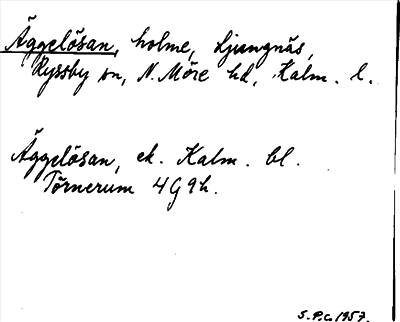 Äggelösan, holme, Ljungnäs,
Ryssby sn, N. Möre hd, Kalm. l.
Äggelösan, ek. Kalm. bl.
Törnerum 4G9h.
S.P.C. 1957.